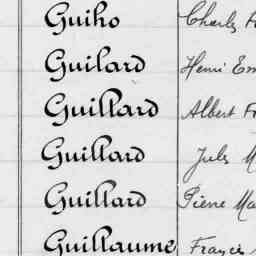 Guiho Charles
Guilard Henri Em
Guillard Albert
Guillard Jules M
Guillard Pierre Ma
Guillaume Francis